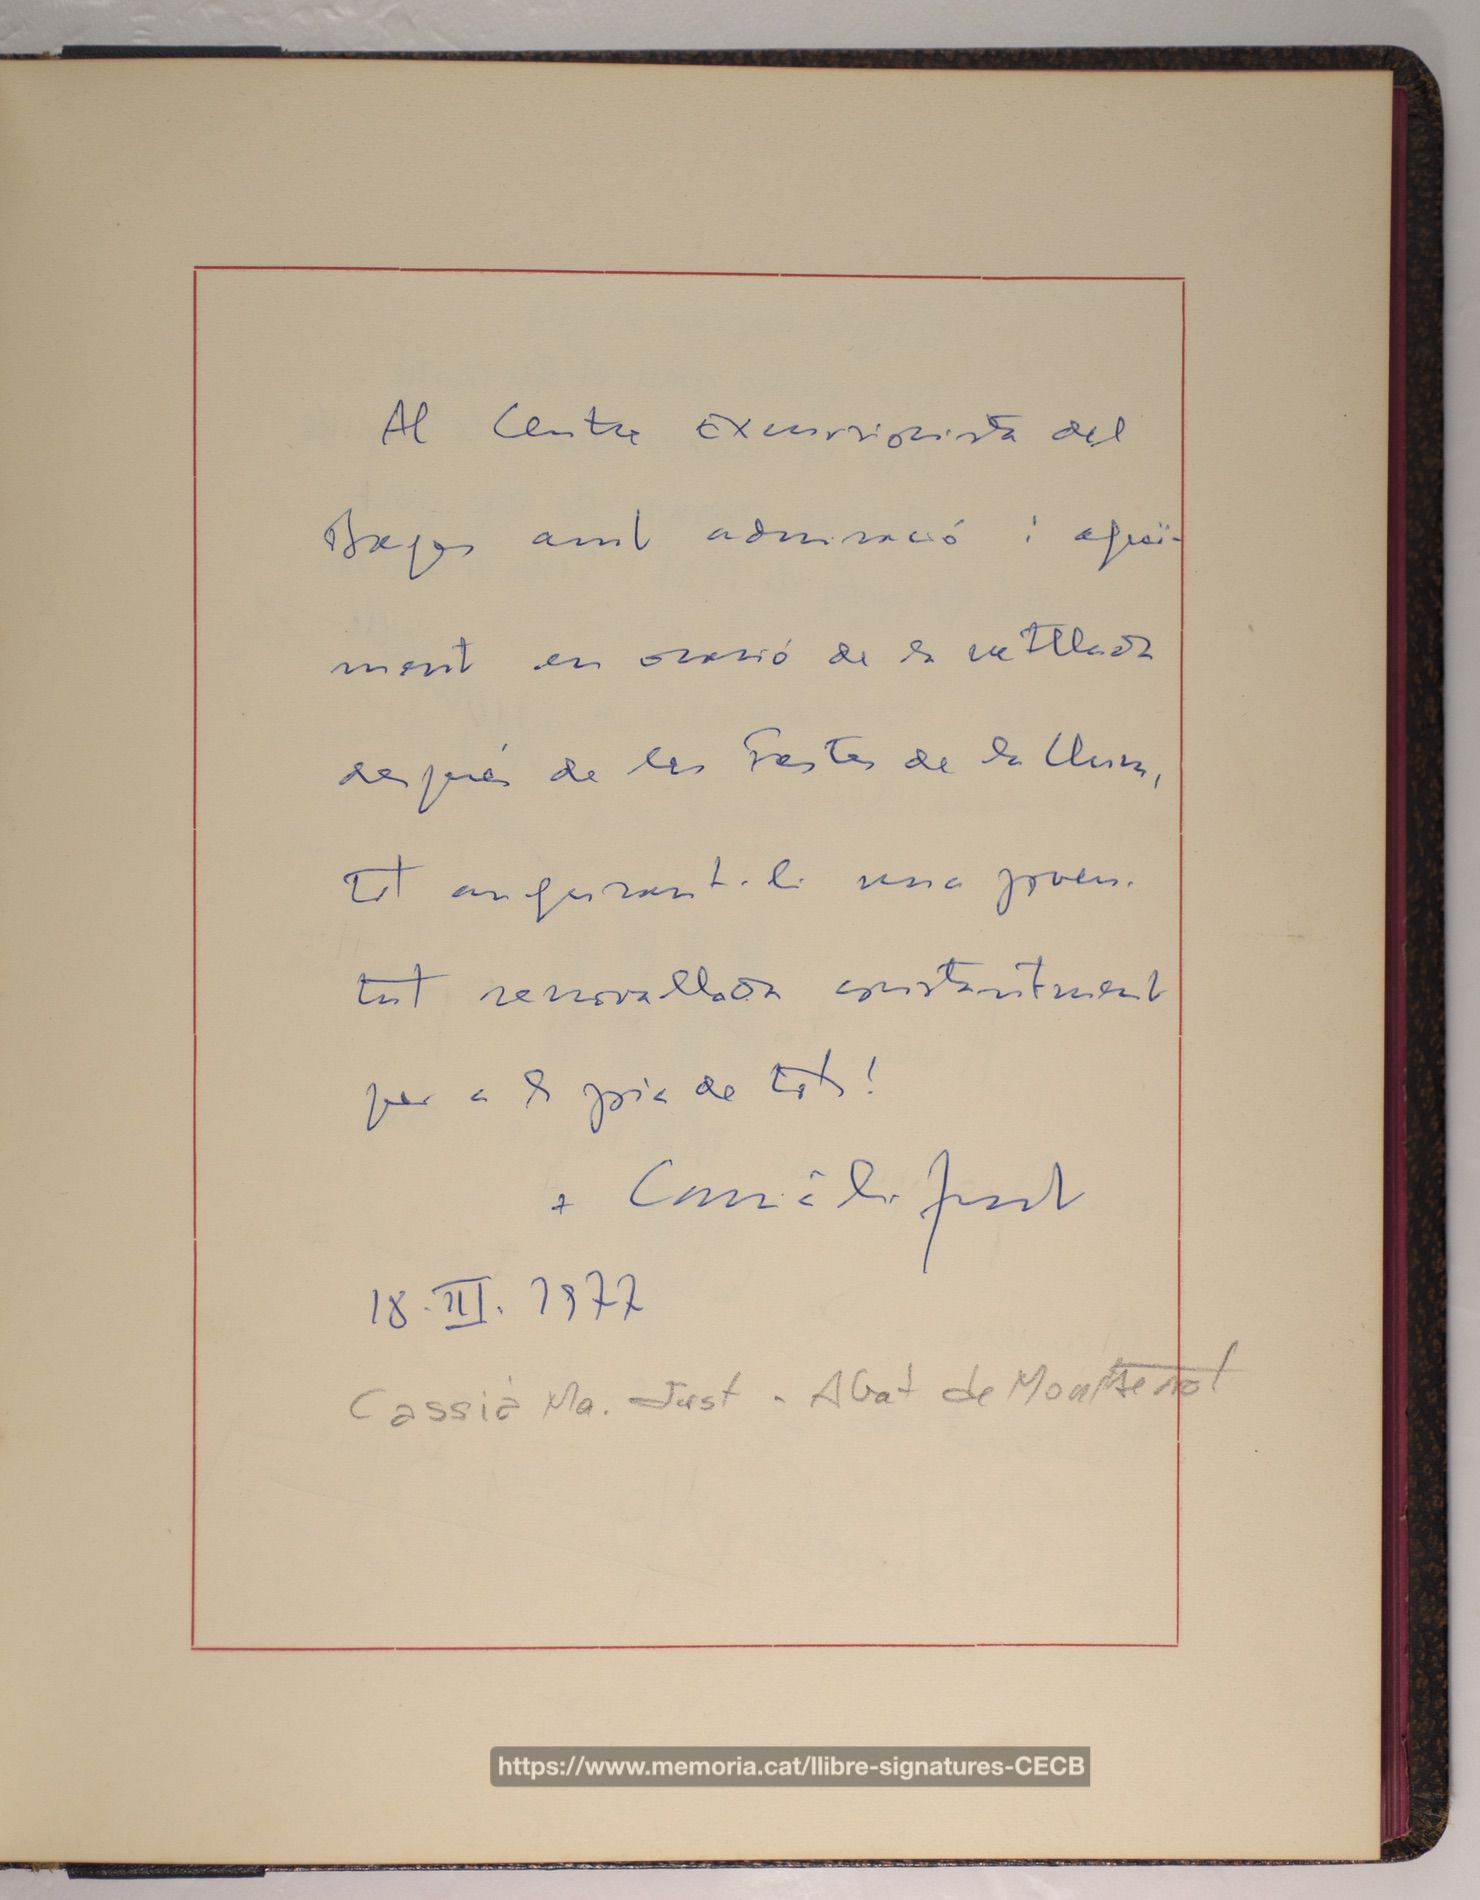 Al Centre Excursionista del
Bages amb admiració i agraï-
ment en ocasió de la vetllada
després de les Festes de la Llum,
tot augurant-li una joven-
tut renovellada constantment
per a la joia de tots!
+ Cassià M. Just
18.III.1977
Cassià Ma. Just - Abat de Montserrat
https://www.memoria.cat/llibre-signatures-CECB